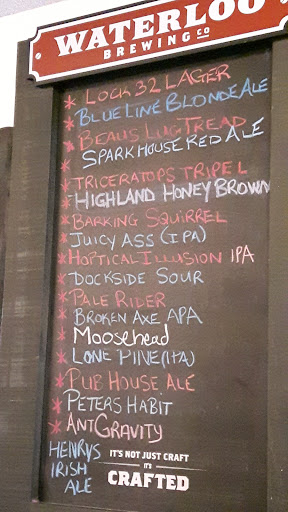 WATERLOO
BREWING CO
* LOCK 32 LAGER
* BLUE LINE BLONDE ALE
* BEAUS LUG TREAD
* SPARK HOUSE RED ALE
* TRICERATOPS TRIPEL
* HIGHLAND HONEY BROWN
* BARKING SQUIRREL
* JUICY ASS (IPA)
* HOPTICAL ILLUSION IPA
* DOCKSIDE SOUR
* PALE RIDER
* BROKEN AXE APA
* Moosehead
* LONE PINE (IPA)
* PUB HOUSE ALE
* PETERS HABIT
* ANTGRAVITY
HENRYS
IRISH
ALE
IT'S NOT JUST CRAFT
IT'S
CRAFTED